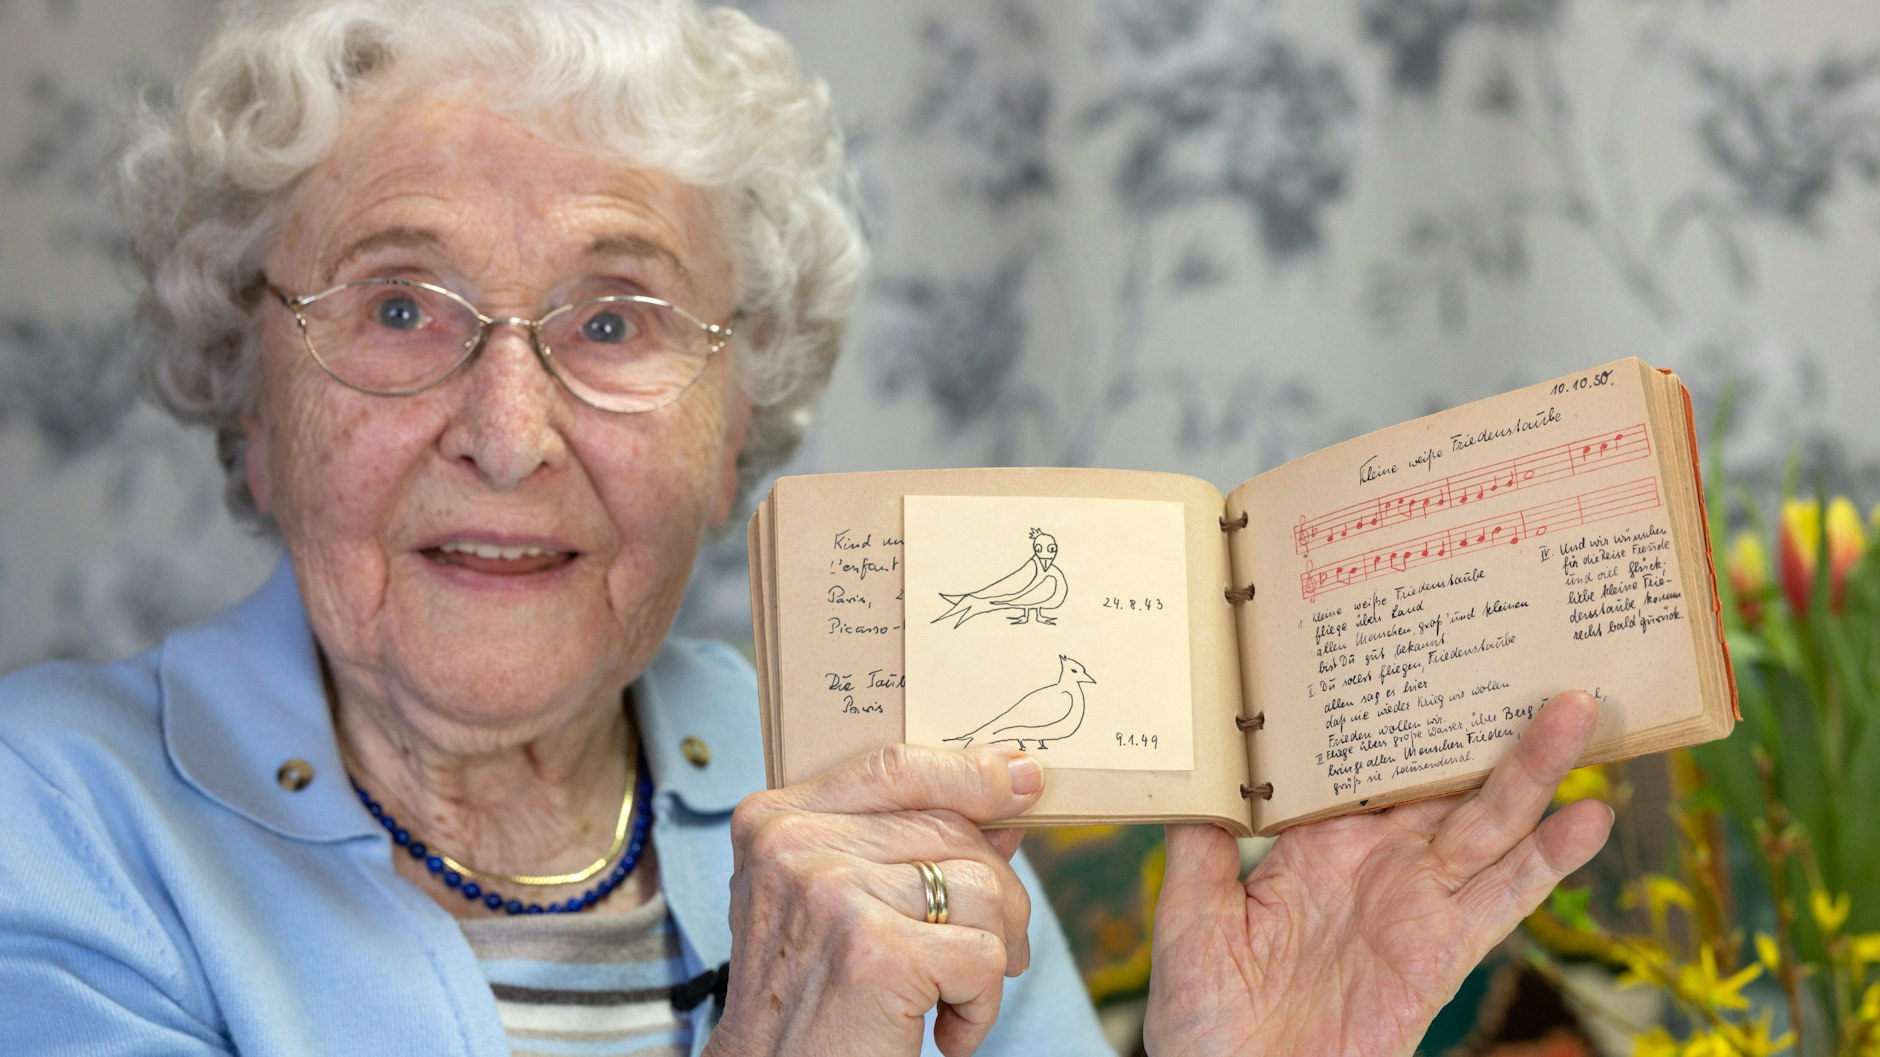 Kind un
L'enfant
Paris, 2
Picasso-
Die Taub
Paris
24.8.43
9.1.49
10.10.50.
Kleine weiße Friedenstaube
1. Kleine weiße Friedenstaube
fliege übers Land
allen Menschen, groß' und kleinen
bist Du gut bekannt
Du sollst fliegen, Friedenstaube
allen sag es hier
daß nie wieder Krieg wir wollen
Frieden wollen wir.
Fliege übers große Wasser, über Berg
bringe allen Menschen Frieden,
grüß sie tausendmal.
IV. Und wir wünschen
für die Reise Freude
und viel Glück;
liebe kleine Frie-
denstaube, komm
recht bald zurück.